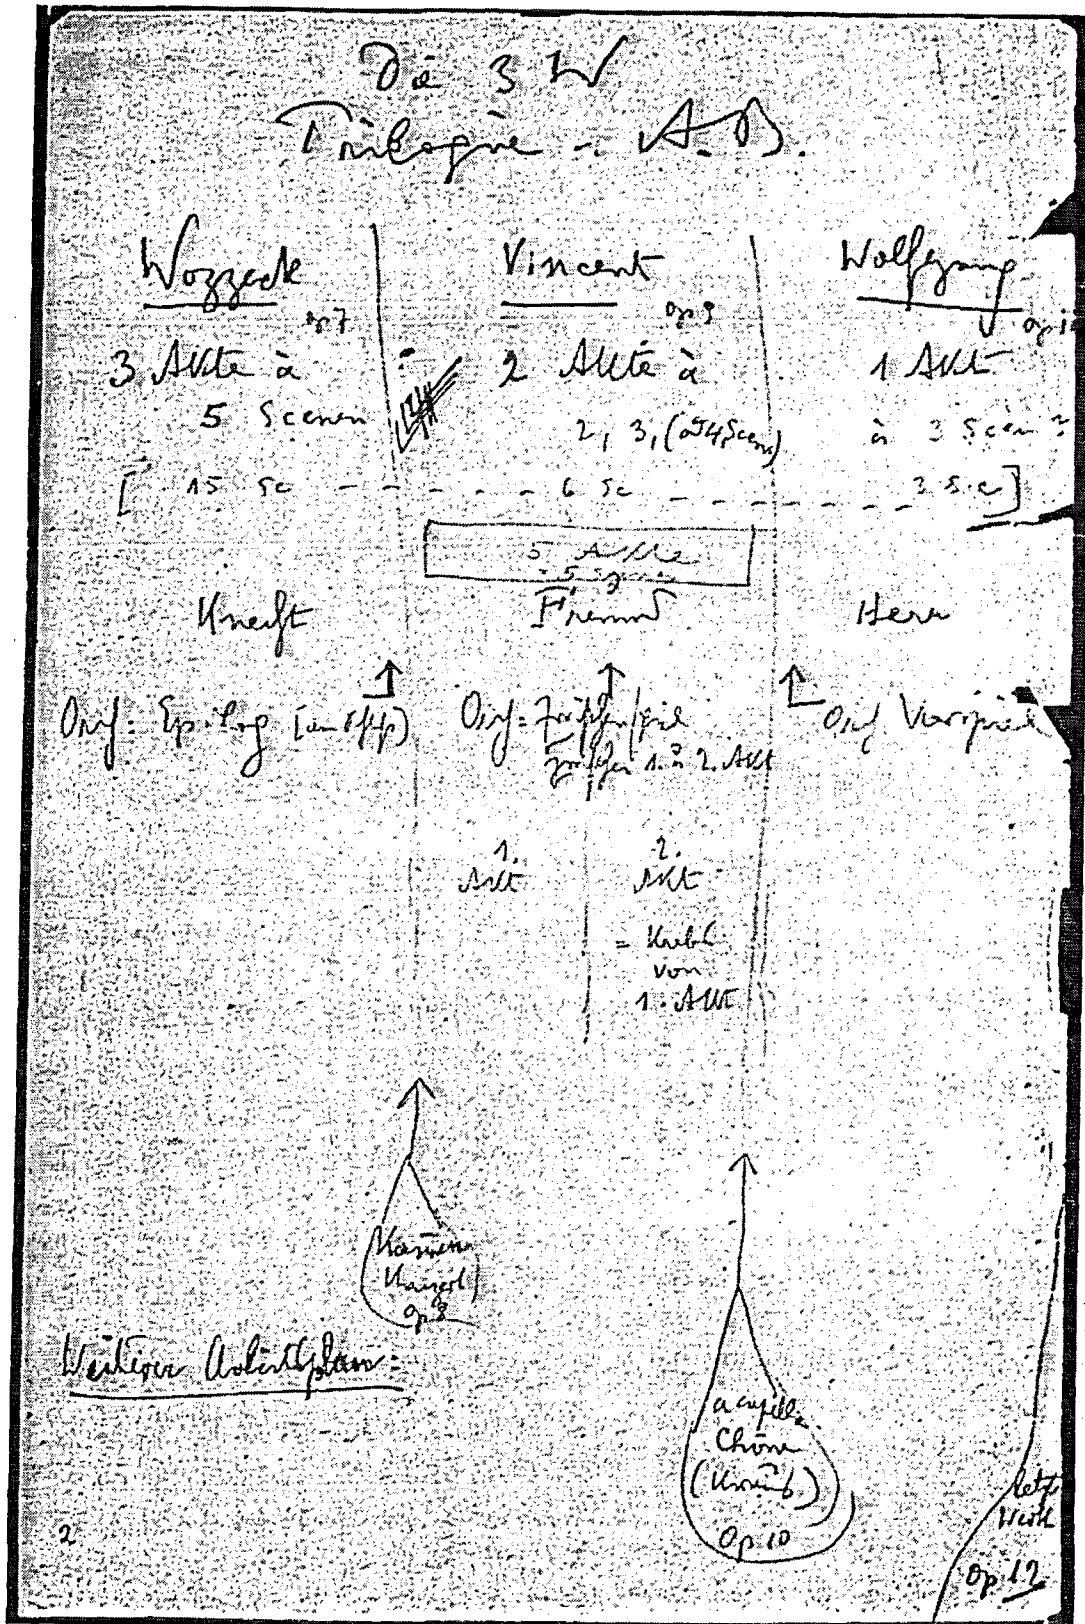 Die 3 W
Trilogie - A.B.
Wozzeck
op 7
3 Akte à
5 Scenen
[ 15 Sc - - - - - 6 Sc - - - - - - 3 Sc ]
Vincent
op 9
2 Akte à
2, 3, (od 4 Scen)
Wolfgang
op 1
1 Akt
à 3 Scen
5 Akte
Knecht
Freund
Herr
Orch: Epilog
Orch = Zwischenspiel
zwischen 1. u 2. Akt
Orch Vorspiel
1.
Akt
2.
Akt
= Krebs
von
1. Akt
Kammer
Konzert
op 8
Weiterer Arbeitsplan:
a capella
Chöre
(Kraus)
Op 10
letzt
Werk
Op 12
2